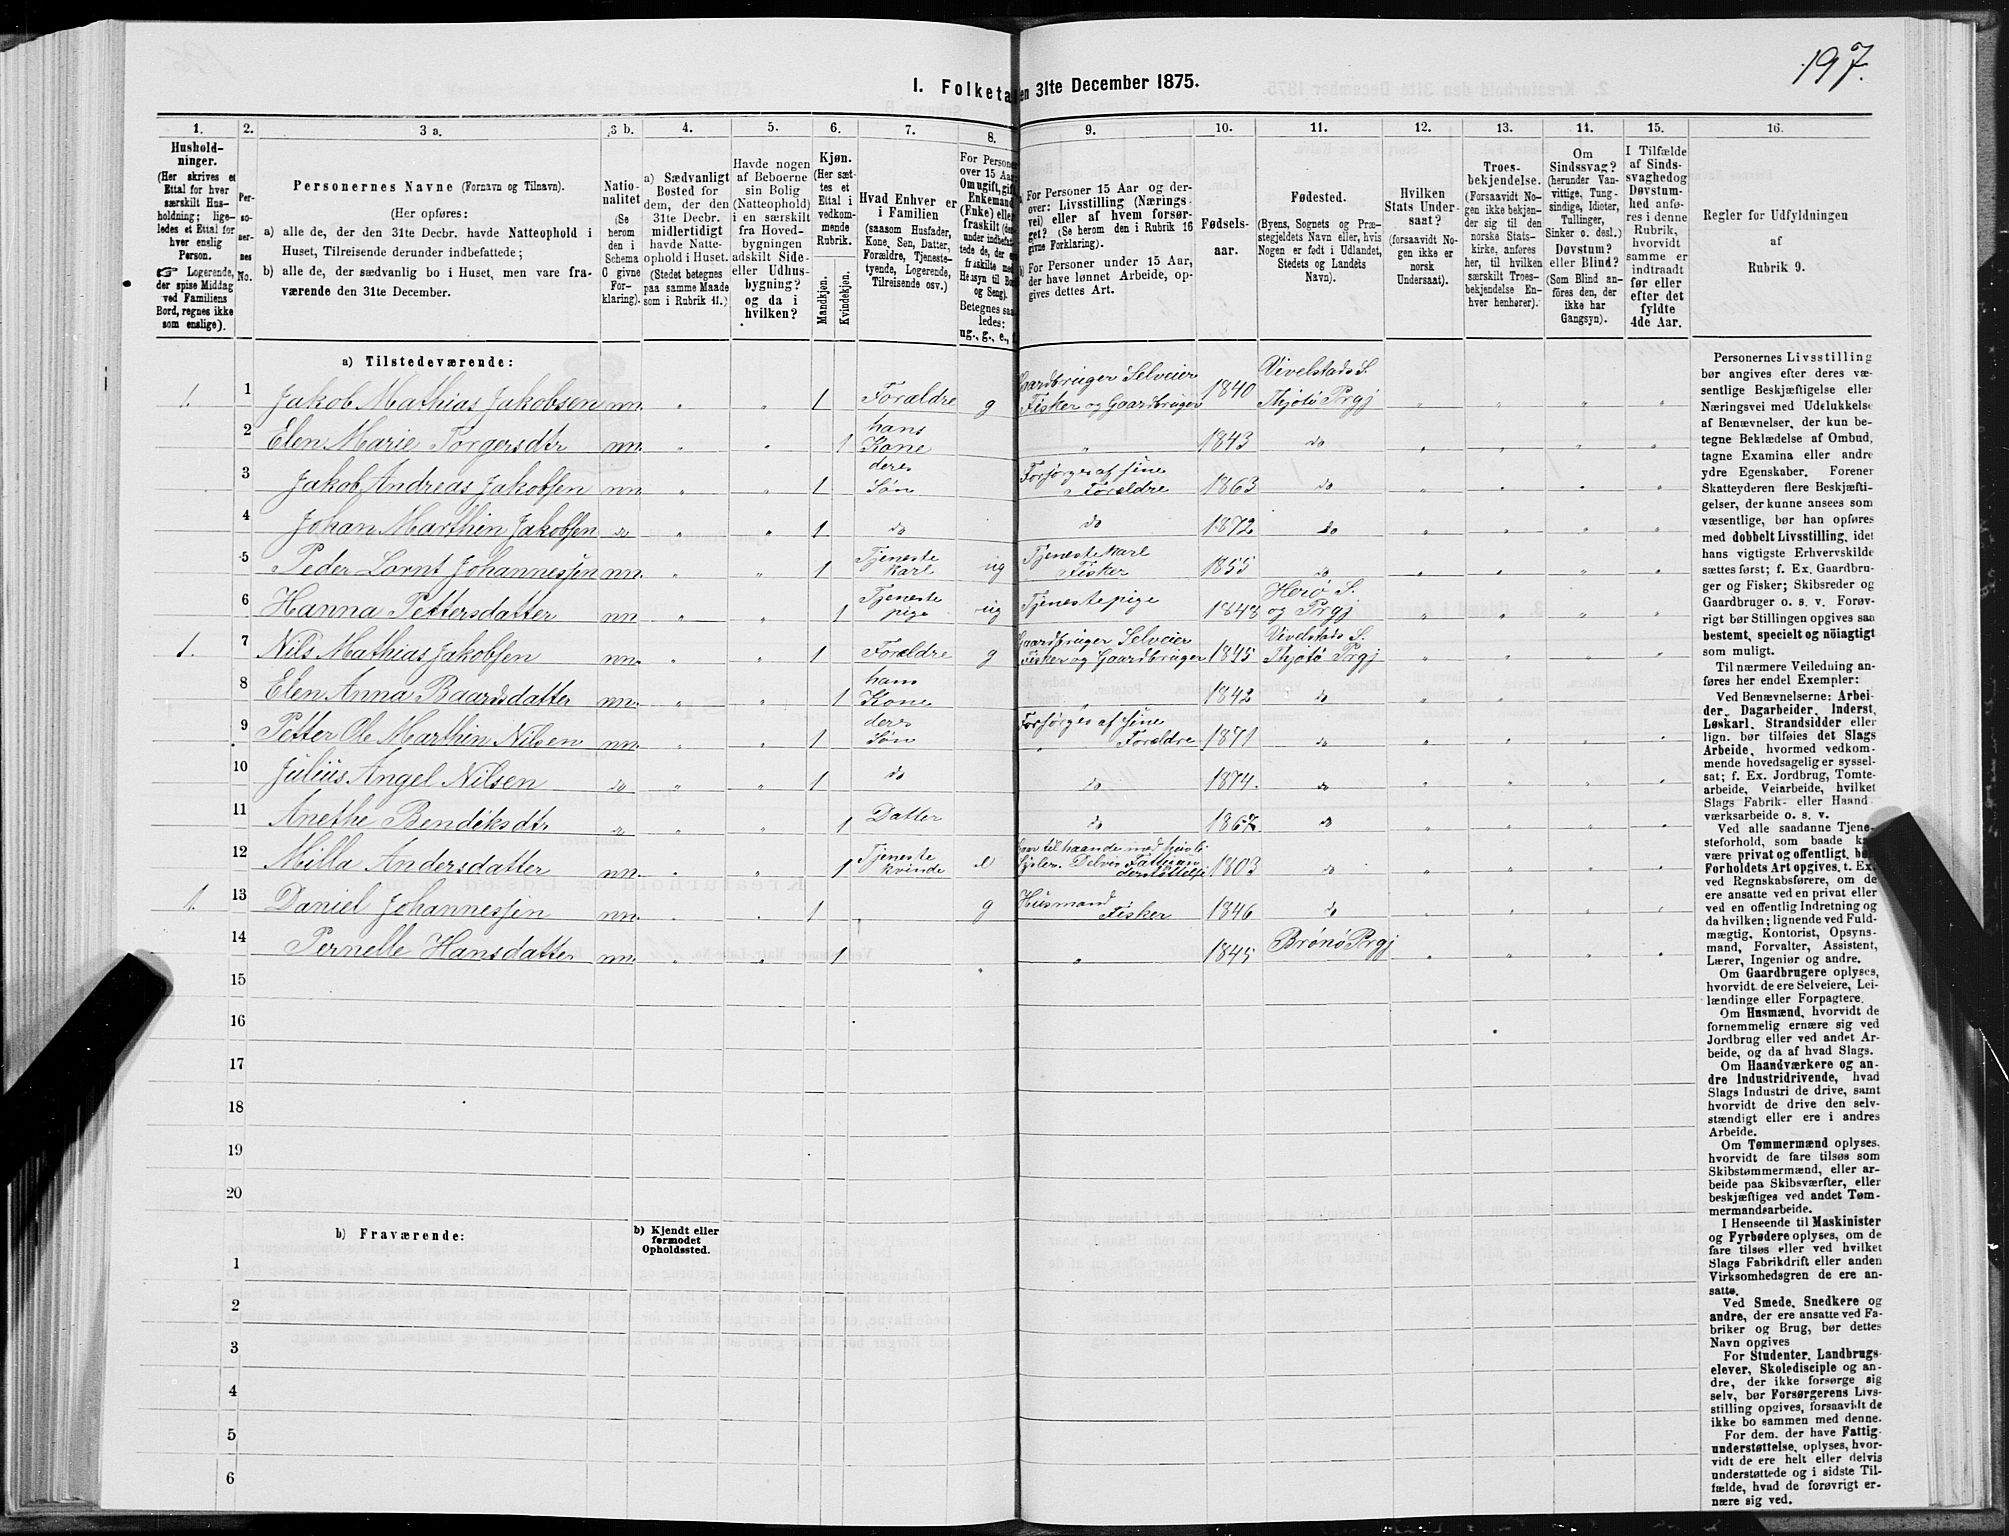 197.
I. Folketa en 31te December 1875.
1. 2. 3 a. 3 b. 4. 5. 6. 7. 8. 9. 10. 11. 12. 13. 14. 15. 16.
Hushold-
ninger.
(Her skrives et
Ettal for hver
særskilt Hus-
holdning; lige-
ledes et Ettal for
hver enslig
Person.
☞ Logerende,
der spise Middag
ved Familiens
Bord, regnes ikke
som enslige).
Per-
so-
ner-
nes
No.
Personernes Navne (Fornavn og Tilnavn).
(Her opføres:
a) alle de, der den 31te Decbr. havde Natteophold i
Huset, Tilreisende derunder indbefattede;
b) alle de, der sædvanlig bo i Huset, men vare fra-
værende den 31te December.
Natio-
nalitet
(Se
herom
den i
Schema
C givne
For-
klaring).
a) Sædvanligt
Bosted for
dem, der den
31te Decbr.
midlertidigt
havde Natte-
ophold i Huset.
(Stedet betegnes
paa samme Maade
som i Rubrik 11.)
Havde nogen
af Beboerne
sin Bolig
(Natteophold)
i en særskilt
fra Hoved-
bygningen
adskilt Side-
eller Udhus-
bygning?
og da i
hvilken?
Kjøn.
(Her sæt-
tes et
Ettal i
vedkom-
mende
Rubrik.
Mandkjøn.
Kvindekjøn.
Hvad Enhver er
i Familien
(saasom Husfader,
Kone, Søn, Datter,
Forældre, Tjeneste-
tyende, Logerende,
Tilreisende osv.)
For Persone
over 15 Aar
Om ugift, gift,
Enkemand
(Enke) eller
fraskilt
Betegnes saa
ledes:
ug., g., e., f.
a) For Personer 15 Aar og der-
over: Livsstilling (Nærings-
vei) eller af hvem forsør-
get? (Se herom den i Rubrik 16
givne Forklaring).
b) For Personer under 15 Aar,
der have lønnet Arbeide, op-
gives dettes Art.
Fødsels-
aar.
Fødested.
(Byens, Sognets og Præ-
stegjeldets Navn eller, hvis
Nogen er født i Udlandet,
Stedets og Landets
Navn).
Hvilken
Stats Under-
saat?
(forsaavidt No-
gen ikke er
norsk
Undersaat).
Troes-
bekjendelse.
(Forsaavidt No-
gen ikke bekjen-
der sig til den
norske Stats-
kirke, anføres
her, til hvilken
særskilt Troes-
bekjendelse En-
hver henhører).
Om
Sindssvag?
(herunder Van-
vittige, Tung-
sindige, Idioter,
Tullinger,
Sinker o. desl.)
Døvstum?
eller Blind?
(Som Blind an-
føres den, der
ikke har
Gangsyn).
I Tilfælde
af Sinds-
svaghed og
Døvstum-
hed anfø-
res i denne
Rubrik,
hvorvidt
samme er
indtraadt
før eller
efter det
fyldte
4de Aar.
Regler for Udfyldningen
af
Rubrik 9.
a) Tilstedeværende:
1. 1 Jakob Mathias Jakobsen nn. " " 1 Forældre g Gaardbruger Selveier Fisker og Gaardbruger 1840 Vivelstads S. Thjøtø Prgj " " " "
2 Elen Marie Torgersdtr nn. " " 1 hans Kone " 1843 do " " " "
3 Jakob Andreas Jakobsen nn. " " 1 deres Søn Forsørges af sine Forældre 1863 do " " " "
4 Johan Marthin Jakobsen do " " 1 do do 1872 do " " " "
5 Peder Lornt Johannessen nn. " " 1 Tjeneste karl ug Tjenestekarl Fisker 1855 do " " " "
6 Hanna Pettersdatter nn. " " 1 Tjeneste pige ug Tjenestepige 1848 Herø S. og Prgj " " " "
1. 7 Nils Mathias Jakobsen nn. " " 1 Forældre g Gaardbruger Selveier Fisker og Gaardbruger 1845 Vivelstads S. Thjøtø Prgj " " " "
8 Elen Anna Baardsdatter nn. " " 1 hans Kone " 1842 do " " " "
9 Petter Ole Marthin Nilsen nn. " " 1 deres Søn Forsørges af sine " Forældre 1871 do " " " "
10 Julius Angel Nilsen do " " 1 do do 1874. do " " " "
11 Anethe Bendiksdtr do " " 1 Datter do 1867 do " " " "
12 Milla Andersdatter nn. " " 1 Tjeneste kvinde e til haande med Delvis Fattigun derstøttelse 1803 do " " " "
1. 13 Daniel Johannessen nn. " " 1 g Husmand Fisker 1846 do " " " "
14 Pernelle Hansdatter nn. " " 1 " " 1845 Brønø Prgj " " " "
15
16
17
18
19
20
b) Fraværende:
b) Kjendt eller
formodet
Opholdssted.
1
2
3
4
5
6
Personernes Livsstilling
bør angives efter deres væ-
sentlige Beskjæftigelse eller
Næringsvei med Udelukkelse
af Benævnelser, der kun be-
tegne Beklædelse af Ombud,
tagne Examina eller andre
ydre Egenskaber. Forener
Skatteyderen flere Beskjæfti-
gelser, der kunne ansees som
væsentlige, bør han opføres
med dobbelt Livsstilling, idet
hans vigtigste Erhvervskilde
sættes først; f. Ex. Gaardbru-
ger og Fisker; Skibsreder og
Gaardbruger o. s. v. Forøv-
rigt bør Stillingen opgives saa
bestemt, specielt og nöiagtigt
som muligt.
Til nærmere Veiledning an-
føres her endel Exempler:
Ved Benævnelserne: Arbei-
der, Dagarbeider, Inderst,
Løskarl, Strandsidder eller
lign. bør tilføies det Slags
Arbeide, hvormed vedkom-
mende hovedsagelig er syssel-
sat; f. Ex. Jordbrug, Tomte-
arbeide, Veiarbeide, hvilket
Slags Fabrik- eller Haand-
værksarbeide o. s. v.
Ved alle saadanne Tjene-
steforhold, som baade k
være privat og offentligt, bø
Forholdets Art opgives, t. Ex.
ved Regnskabsførere, om de
ere ansatte ved en privat eller
ved en offentlig Indretning og
da hvilken; lignende ved Fuld-
mægtig, Kontorist, Opsyns-
mand, Forvalter, Assistent,
Lærer, Ingeniør og andre.
Om Gaardbrugere oplyses,
hvorvidt de ere Selveiere, Lei-
lændinge eller Forpagtere.
Om Husmænd, hvorvidt de
fornemmelig ernære sig ved
Jordbrug eller ved andet Ar-
beide, og da af hvad Slags.
Om Haandværkere og an-
dre Industridrivende, hvad
Slags Industri de drive, samt
hvorvidt de drive den selv-
stændigt eller ere i andres
Arbeide.
Om Tømmermænd oplyses,
hvorvidt de fare tilsøs som
Skibstømmermænd, eller ar-
beide paa Skibsværfter, eller
beskjæftiges ved andet Tøm-
mermandsarbeide.
I Henseende til Maskinister
og Fyrbødere oplyses, om de
fare tilsøs eller ved hvilket
Slags Fabrikdrift eller anden
Virksomhedsgren de ere an-
satte.
Ved Smede, Snedkere og
andre, der ere ansatte ved Fa-
briker og Brug, bør dettes
Navn opgives
For Studenter, Landbrugs-
elever, Skoledisciple og an-
dre, der ikke forsørge sig
selv, bør Forsørgerens Livs-
stilling opgives, forsaavidt de
ikke bo sammen med denne.
For dem, der have Fattig-
understøttelse, oplyses, hvor-
vidt de ere helt eller delvis
understøttede og i sidste Til-
fælde, hvad de forøvrigt er-
nære sig ved.